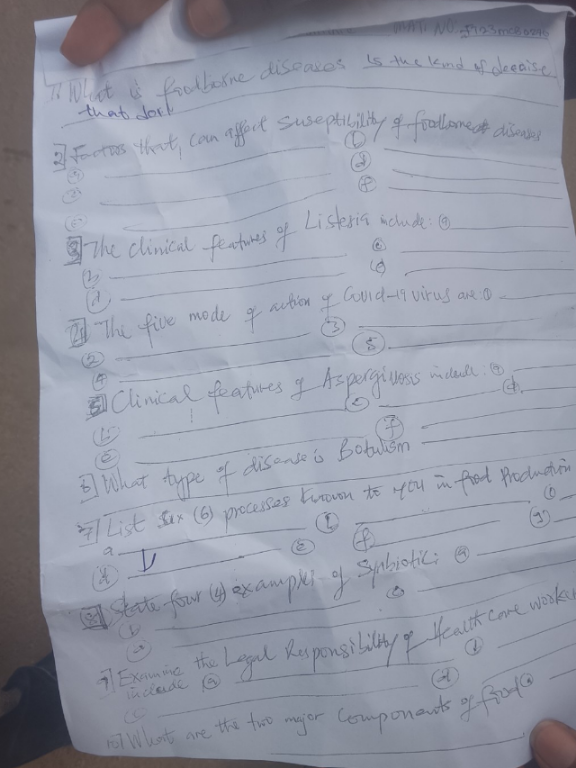 MATI NO.
1) What is foodborne diseases Is the kind of decoise
that dort
2) Factors that, can affect suseptibility of foodborne diseases
(b)
(a) (d)
(f)
(e)
3] The Clinical features of Listeria include: (a)
(b) (c)
(d) (e)
4] The five mode of action of Covid-19 virus are: (1)
(2) (3)
(4) (5)
5] Clinical features of Aspergillosis include: (a)
(b) (c) (d)
(e) (f)
6] What type of disease is Botulism
7] List Six (6) processes known to you in food Production
a (b) (c)
(d) (e) (f) (g)
8] State four (4) examples of Synbiotic: (a)
(b) (c)
(d)
9] Examine the Legal Responsibility of Health care worker
include (a) (b)
(c) (d)
10] What are the two major Components of food (a)